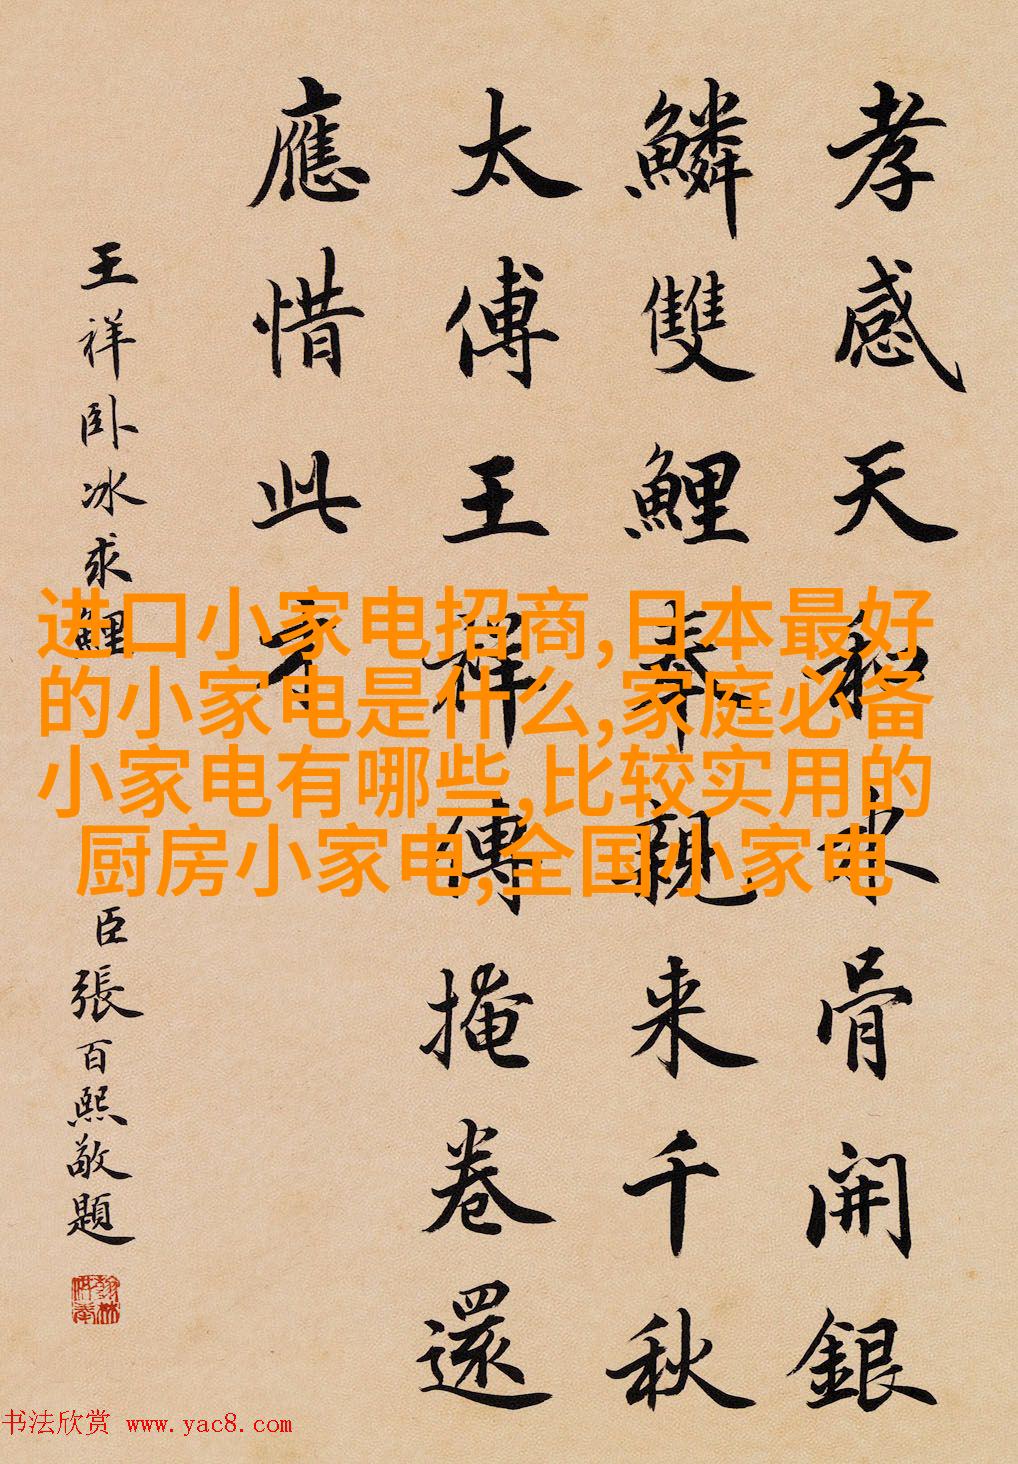 孝感天和氷骨開銀
鱗雙鯉奉親来千秋
太傅王祥傳掩卷還
應惜此才
王祥卧冰求鯉
臣張百熙敬題
进口小家电招商,日本最好
的小家电是什么,家庭必备
小家电有哪些,比较实用的
厨房小家电,全国小家电
书法欣赏 www.yac8.com